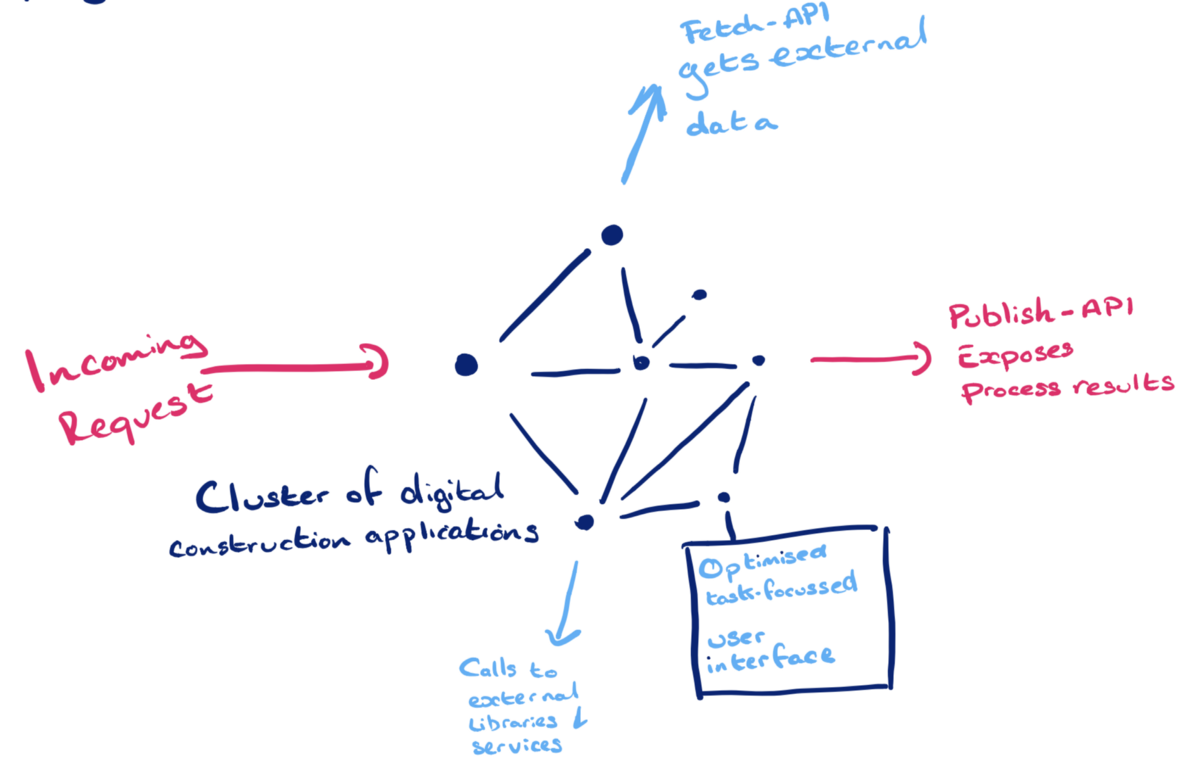 Fetch-API
gets external
data
Incoming
Request
Publish-API
Exposes
Process results
Cluster of digital
construction applications
Optimised
task-focussed
user
interface
Calls to
external
Libraries &
services